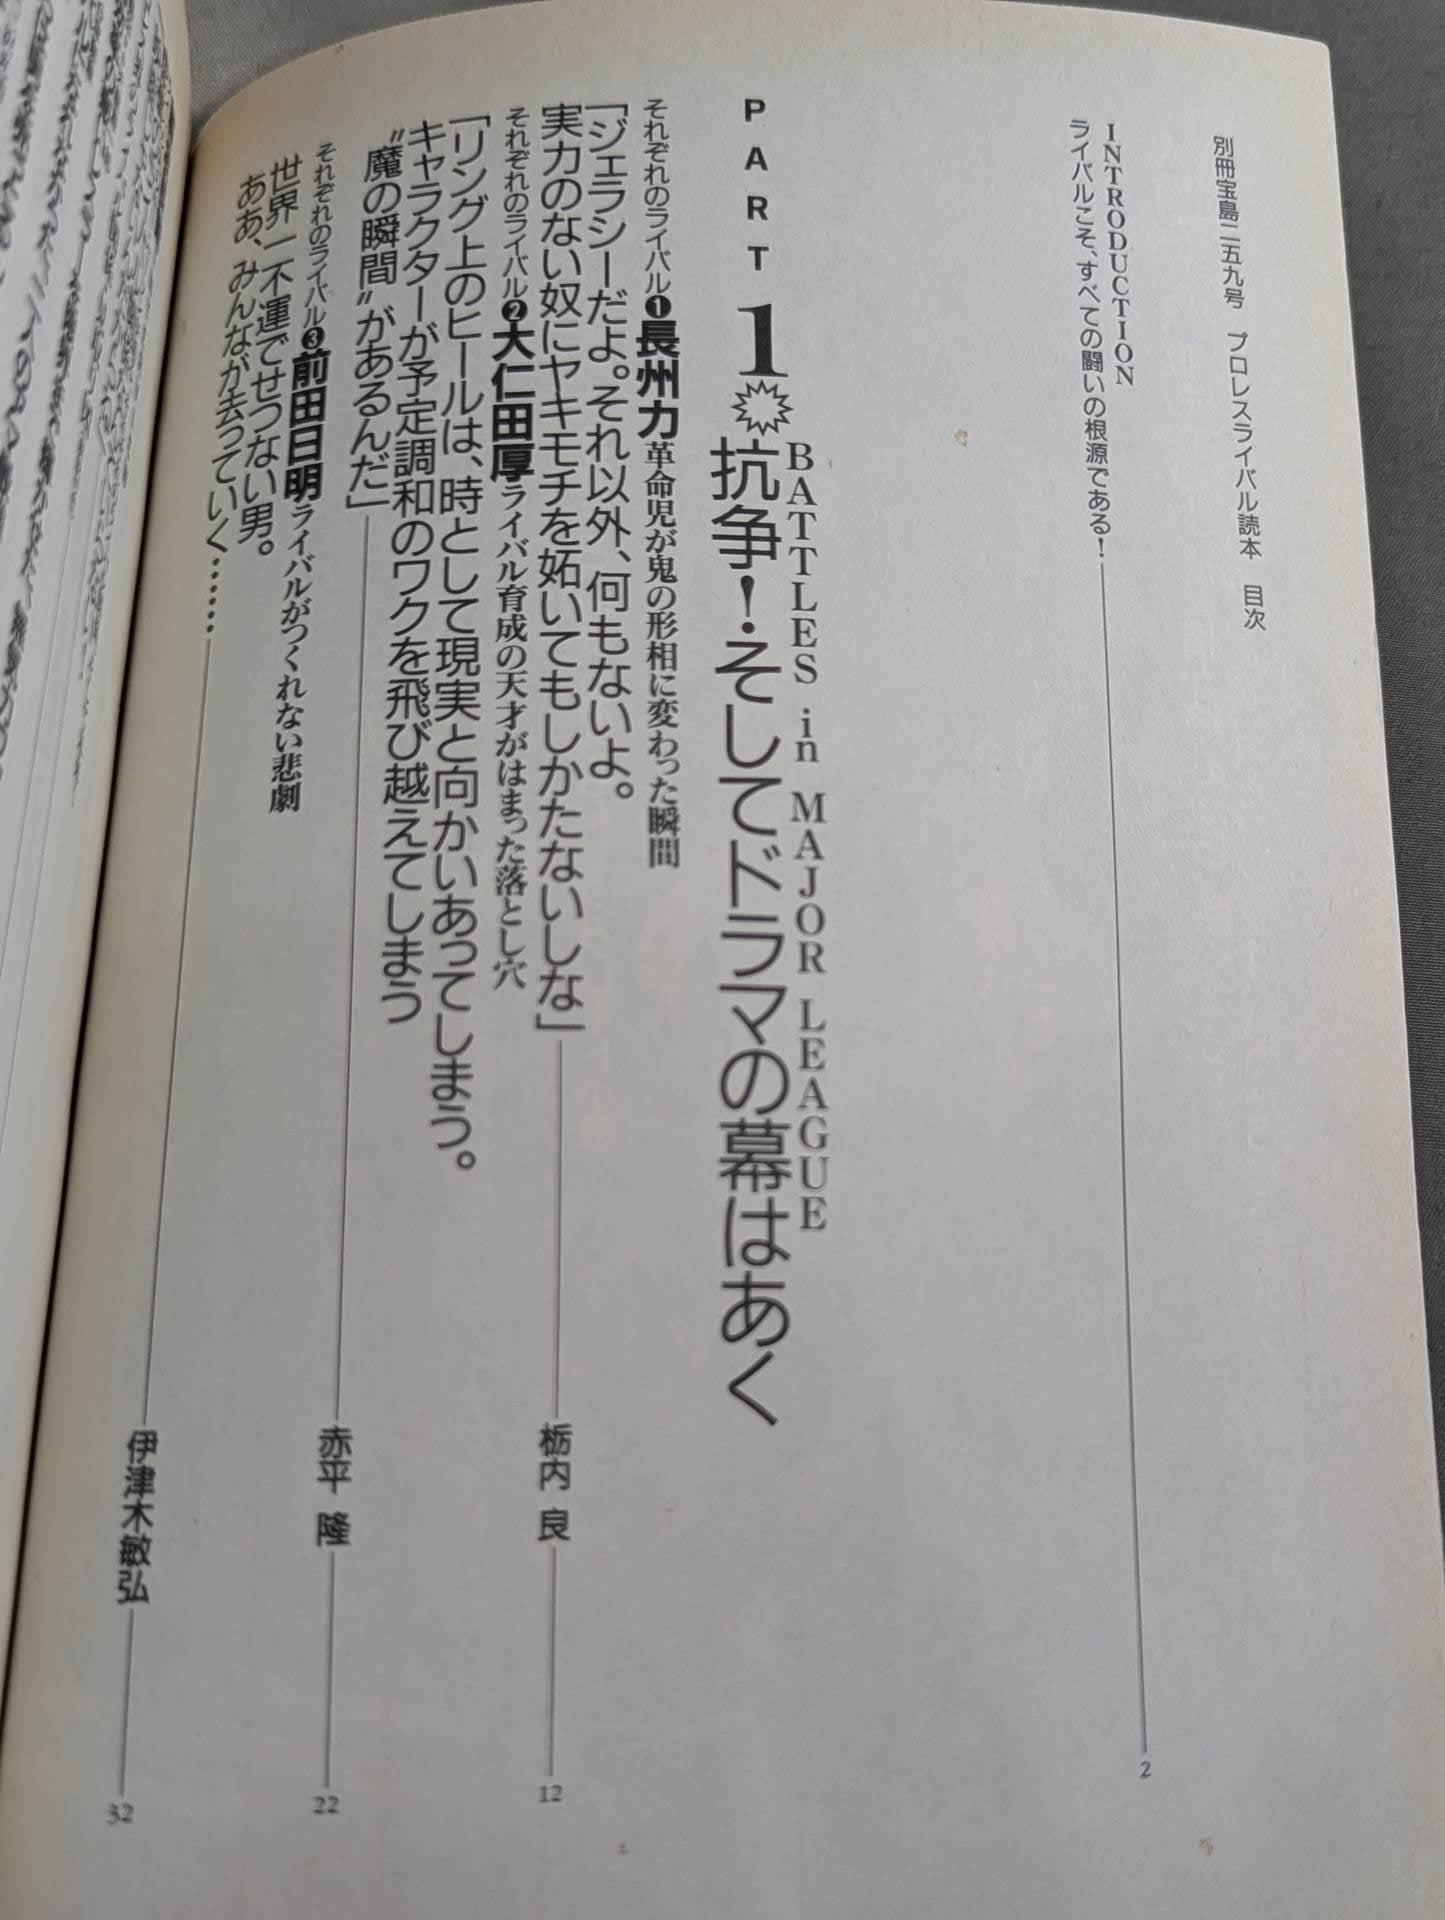 別冊宝島二五九号 プロレスライバル読本 目次
INTRODUCTION
ライバルこそ、すべての闘いの根源である! 2
PART 1 抗争!そしてドラマの幕はあく
BATTLES in MAJOR LEAGUE
それぞれのライバル❶長州力 革命児が鬼の形相に変わった瞬間
「ジェラシーだよ。それ以外、何もないよ。
実力のない奴にヤキモチを妬いてもしかたないしな」 栃内 良 12
それぞれのライバル❷大仁田厚 ライバル育成の天才がはまった落とし穴
「リング上のヒールは、時として現実と向かいあってしまう。
キャラクターが予定調和のワクを飛び越えてしまう
“魔の瞬間”があるんだ」 赤平 隆 22
それぞれのライバル❸前田日明 ライバルがつくれない悲劇
世界一不運でせつない男。
ああ、みんなが去っていく…… 伊津木敏弘 32